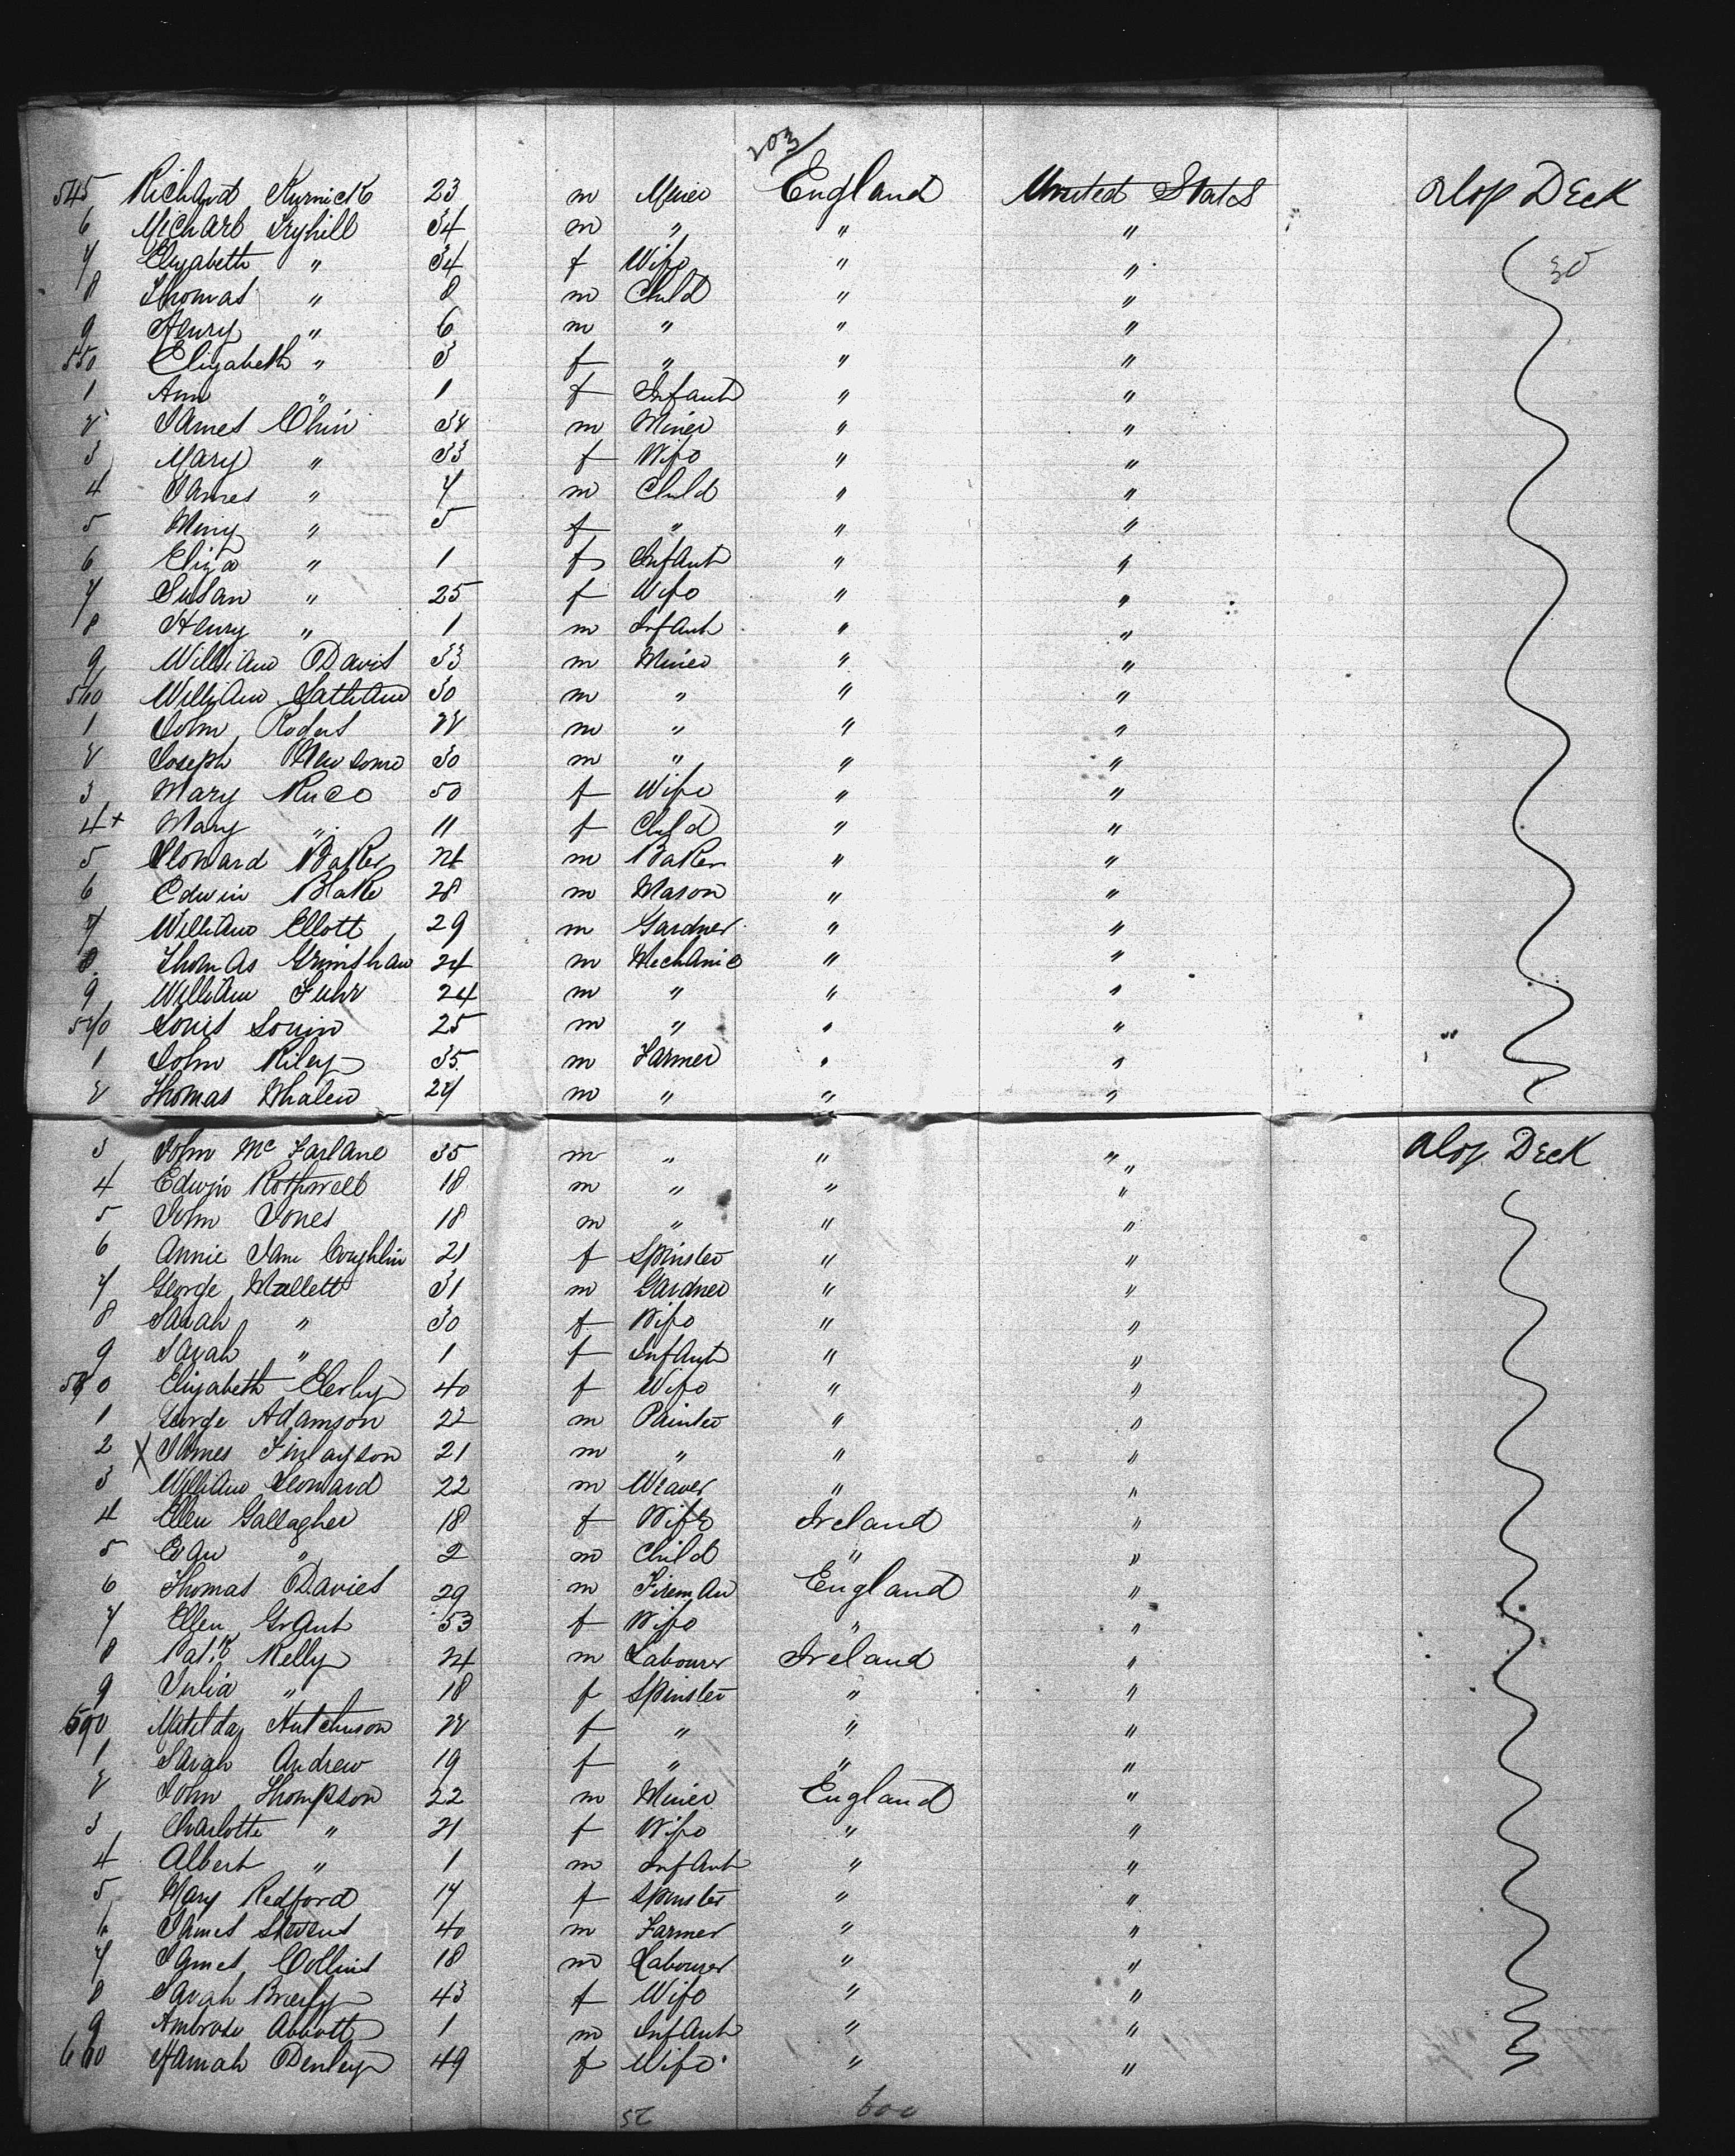 203/
545 Richard Kernick 23 m Miner England United States Orlop Deck
6 Michael Tryhill 34 m " " "
7 Elizabeth " 34 f Wife " " 30
8 Thomas " 8 m Child " "
9 Henry " 6 m " " "
550 Elizabeth " 3 f " " "
1 Ann " 1 f Infant " "
2 James Chin 32 m Miner " "
3 Mary " 33 f Wife " "
4 James " 7 m Child " "
5 Miny " 5 f " " "
6 Eliza " 1 f Infant " "
7 Susan " 25 f Wife " "
8 Henry " 1 m Infant " "
9 William Davis 33 m Miner " "
560 William Latham 30 m " " "
1 John Rodgers 22 m " " "
2 Joseph Newsome 30 m " " "
3 Mary 50 f Wife " "
4 + Mary " 11 f Child " "
5 Leonard Baker 24 m Baker " "
6 Edwin Blake 28 m Mason " "
7 William Ellott 29 m Gardner " "
8 Thomas Grimshaw 24 m Mechanic " "
9 William Fuhr 24 m " " "
570 Louis 25 m " " "
1 John Riley 35 m Farmer " "
2 Thomas Whalen 27 m " " "
3 John McFarlane 35 m " " " Orlop Deck
4 Edwin Rothwell 18 m " " "
5 John Jones 18 m " " "
6 Annie Jane Coughlin 21 f Spinster " "
7 George Mallett 31 m Gardner " "
8 Sarah " 30 f Wife " "
9 Sarah " 1 f Infant " "
580 Elizabeth Elerby 40 f Wife " "
1 George Adamson 22 m Painter " "
2 X James Finlayson 21 m " " "
3 William Leonard 22 m Weaver " "
4 Ellen Gallagher 18 f Wife Ireland "
5 " 2 m Child " "
6 Thomas Davies 29 m Fireman England "
7 Ellen Grant 53 f Wife " "
8 Patk Kelly 24 m Labourer Ireland "
9 Julia " 18 f Spinster " "
590 Matilda Hutchinson 22 f " " "
1 Sarah Andrew 19 f " " "
2 John Thompson 22 m Miner England "
3 Charlotte " 21 f Wife " "
4 Albert " 1 m Infant " "
5 Mary Redford 17 f Spinster " "
6 James Stevens 40 m Farmer " "
7 James Collins 18 m Labourer " "
8 Sarah Brierly 43 f Wife " "
9 Ambrose Abbott 1 m Infant " "
600 Hannah Denley 49 f Wife " "
600